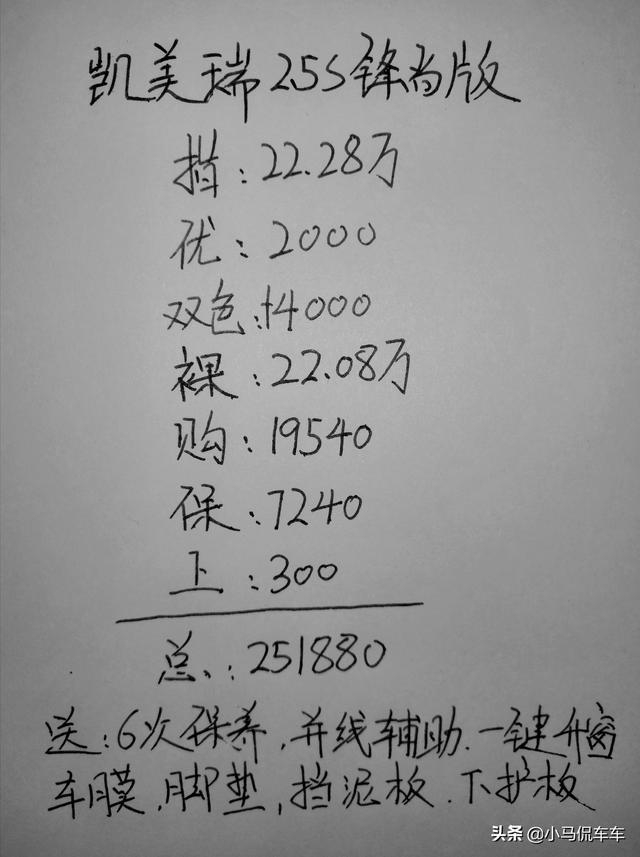 凯美瑞2.5S锋尚版
指:22.28万
优:2000
双色:+4000
裸:22.08万
购:19540
保:7240
上:300
总:251880
送:6次保养,并线辅助.一键升窗
车膜,脚垫,挡泥板.下护板
头条 @小马侃车车